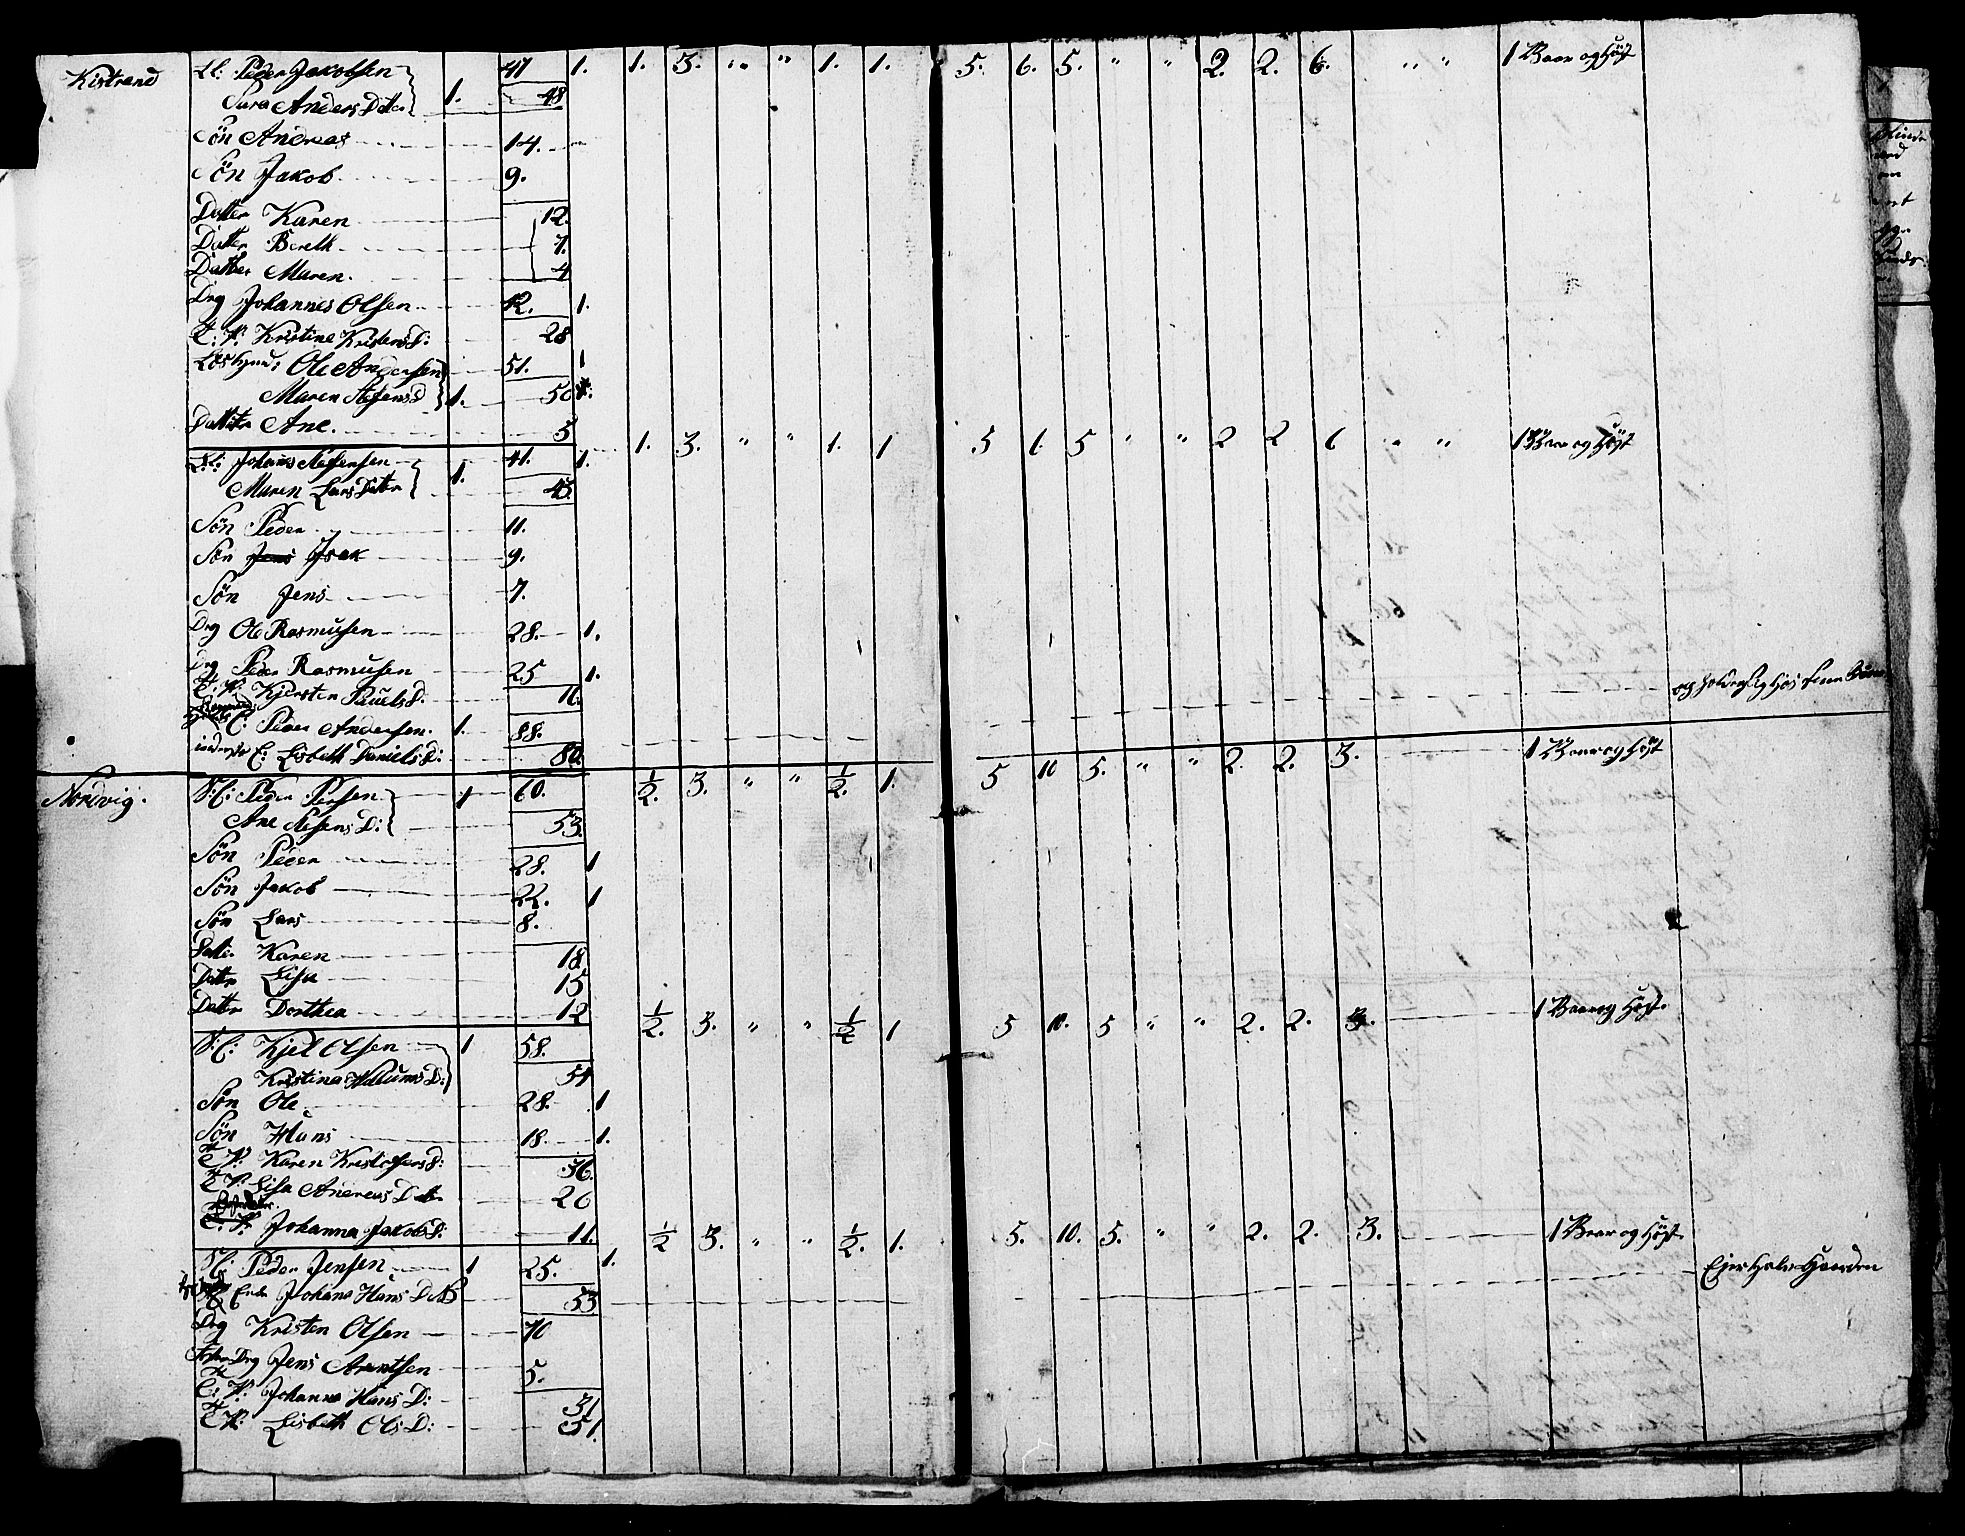 Kistrand Ll: Peder Jakobsen 47 1. 1. 3. " " 1. 1. 5. 6. 5. " " 2. 2. 6. " " 1 Vaar og Höst
Sara Anders Datter 1. 48
Sön Andreas 14.
Sön Jakob 9.
Datter Karen 12.
Datter Bereth 7.
Datter Maren 4
Drg Johannes Olsen 42. 1.
T: P: Kristine Kristens D: 28
Ole Andersen 51. 1
Maren Stefens D 1. 50
Datter Ane. 5 1. 3. " " 1. 1 5 6. 5 " " 2 2 6 " " 1 Vaar og Höst
Ll: Johans 41. 1.
Maren Lars Datter 1. 43
Sön Peder 11.
Sön Isak 9.
Sön Jens 7.
Drg Ole Rasmusen 28. 1.
Drg Peder Rasmusen 25 1.
T: P: Kjersten Pauels D: 16. og holder sig hos
E: Peder Andersen. 1. 88.
E: Lisbeth Daniels D: 80
Nordvig. S: L: Peder Persen 1 60. ½. 3. " " ½. 1. 5 10 5. " " 2. 2. 3. 1 Vaar og Höst
Ane D: 53.
Sön Peder 28. 1
Sön Jakob 22. 1
Sön Lars 8.
Datter Karen 18
Datter Lisa 15
Datter Dorthea 12 ½. 3. " " ½ 1 5 10. 5 " " 2. 2. 3. 1 Vaar og Höst.
S: L: Kjel Olsen 1 58.
Kristina D: 54
Sön Ole 28. 1
Sön Hans 18. 1.
T: P: Karen Kristofers D: 36.
T: P: Lisa Andreas Dat 26
T: P: Johanna Jakobs D: 11. ½ 3. " " ½. 1. 5. 10. 5. " " 2. 2. 3. 1 Vaar og Höst.
S: L: Peder Jensen 1 25. 1. Ejer Halve Gaarden
Enke Johana Hans Dtt 53
Drg Kristen Olsen 70
Foster Drg Jens Arentsen 5.
T: P: Johanna Hans D: 31
T: P: Lisbeth Ols D: 51.